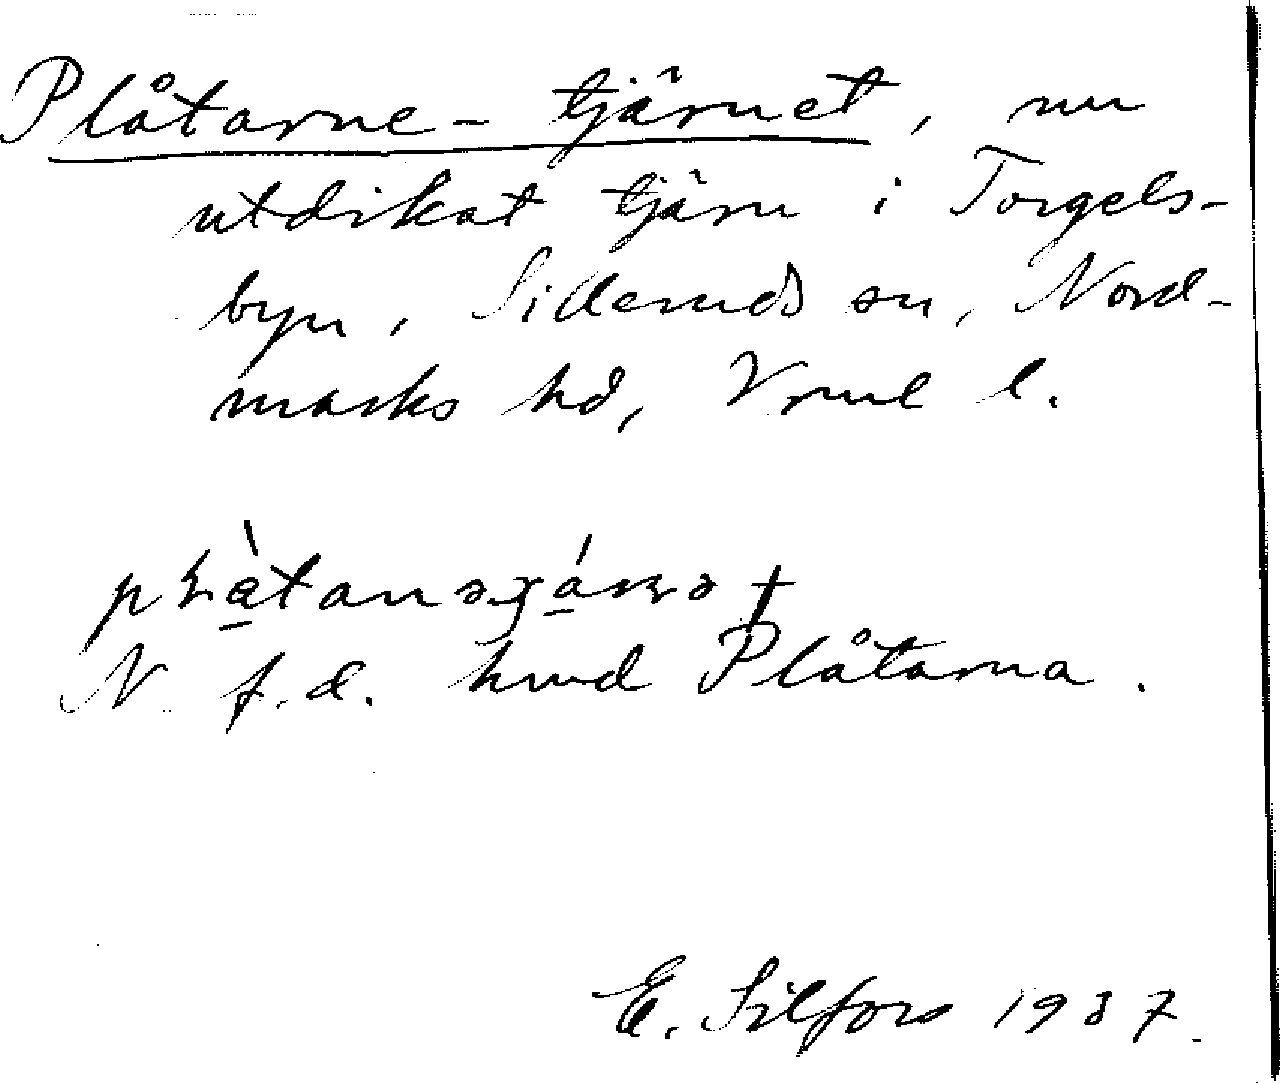 Plåtarne-tjärnet, nu
utdikat tjärn i Torgels-
byn, Silleruds sn, Nord-
marks hd, Vrml l.
N. f.d. hmd Plåtarna.
E. Silfors 1937.